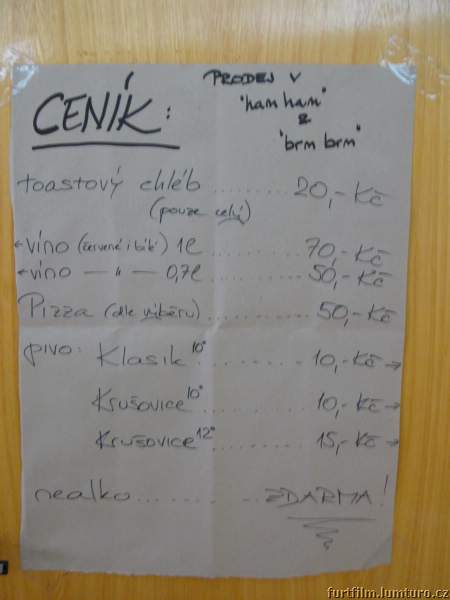 CENÍK:
PRODEJ V
"ham ham"
&
"brm brm"
toastový chléb ........... 20,- Kč
(pouze celý)
← víno (červené i bílé) 1l ........ 70,- Kč
← víno — " — 0,7l ........ 50,- Kč
Pizza (dle výběru) ............ 50,- Kč
pivo: Klasik 10° ............ 10,- Kč →
Krušovice 10° ............ 10,- Kč →
Krušovice 12° ............ 15,- Kč →
nealko ............ ZDARMA!
furtfilm.lumturo.cz